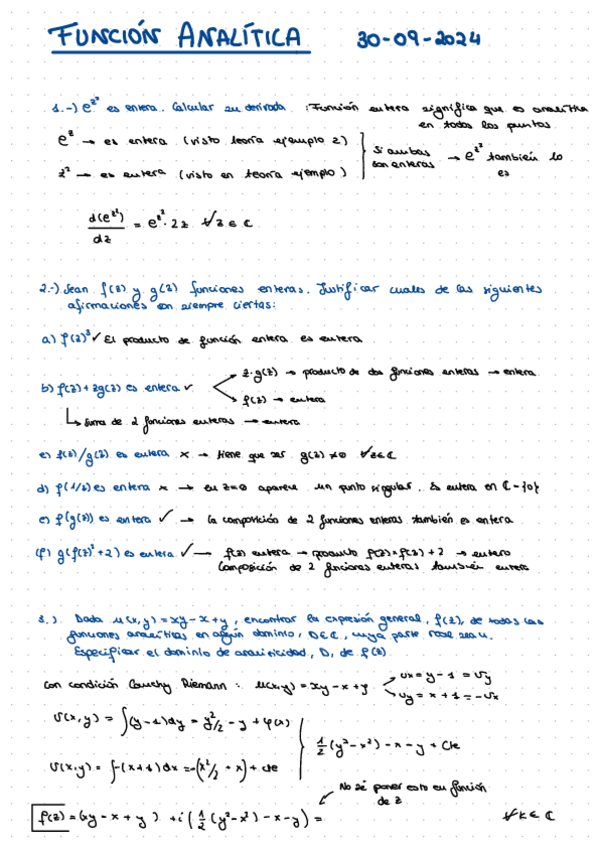 FUNCIÓN ANALÍTICA 30-09-2024
1.-) e^{z²} es entera. Calcular su derivada. : Función entera significa que es analítica
en todos los puntos
e^z → es entera (visto teoría ejemplo 2)
z² → es entera (visto en teoría ejemplo)
si ambas
son enteras → e^{z²} también lo
es
d(e^{z²})/dz = e^{z²}·2z ∀z ∈ ℂ
2.-) Sean f(z) y g(z) funciones enteras. Justificar cuales de las siguientes
afirmaciones son siempre ciertas:
a) f(z)³ ✓ El producto de función entera es entera
b) f(z)+zg(z) es entera ✓
z·g(z) → producto de dos funciones enteras → entera
f(z) → entera
↳ Suma de 2 funciones enteras → entera
c) f(z)/g(z) es entera × → tiene que ser g(z) ≠ 0 ∀z∈ℂ
d) f(1/z) es entera × → en z=0 aparece un punto singular. Es entera en ℂ-{0}
e) f(g(z)) es entera ✓ → la composición de 2 funciones enteras también es entera
(f) g(f(z)²+2) es entera ✓ — f(z) entera → producto f(z)·f(z)+2 → entero
Composición de 2 funciones enteras también entera
3.) Dada u(x,y) = xy-x+y, encontrar la expresión general, f(z), de todas las
funciones analíticas en algún dominio, D∈ℂ, cuya parte real sea u.
Especificar el dominio de analiticidad, D, de f(z).
Con condición Cauchy Riemann : u(x,y) = xy-x+y
ux = y-1 = vy
uy = x+1 = -vx
v(x,y) = ∫(y-1)dy = y²/2 - y + φ(x)
v(x,y) = ∫-(x+1)dx = -(x²/2 + x) + cte
1/2 (y²-x²) - x - y + Cte
No sé poner esto en función
de z
f(z) = (xy - x + y) + i(1/2 (y²-x²) - x - y) = ∀k ∈ ℂ